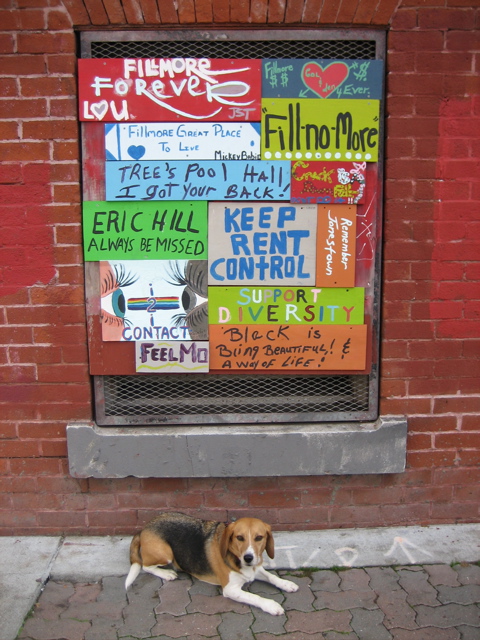 FILLMORE
FOREVER
L♥U.
JST
Fillmore
$$ $$
Ever.
FILLMORE GREAT PLACE
TO LIVE
MICKEY
"Fill-no-More"
TREE'S POOL HALL
I GOT YOUR BACK!
ERIC HILL
ALWAYS BE MISSED
KEEP
RENT
CONTROL
Remember
Jonestown
i
2
i
CONTACT
SUPPORT
DIVERSITY
FEEL MO
Black is
Bling BEAUTIFUL! &
A WAY OF LIFE!